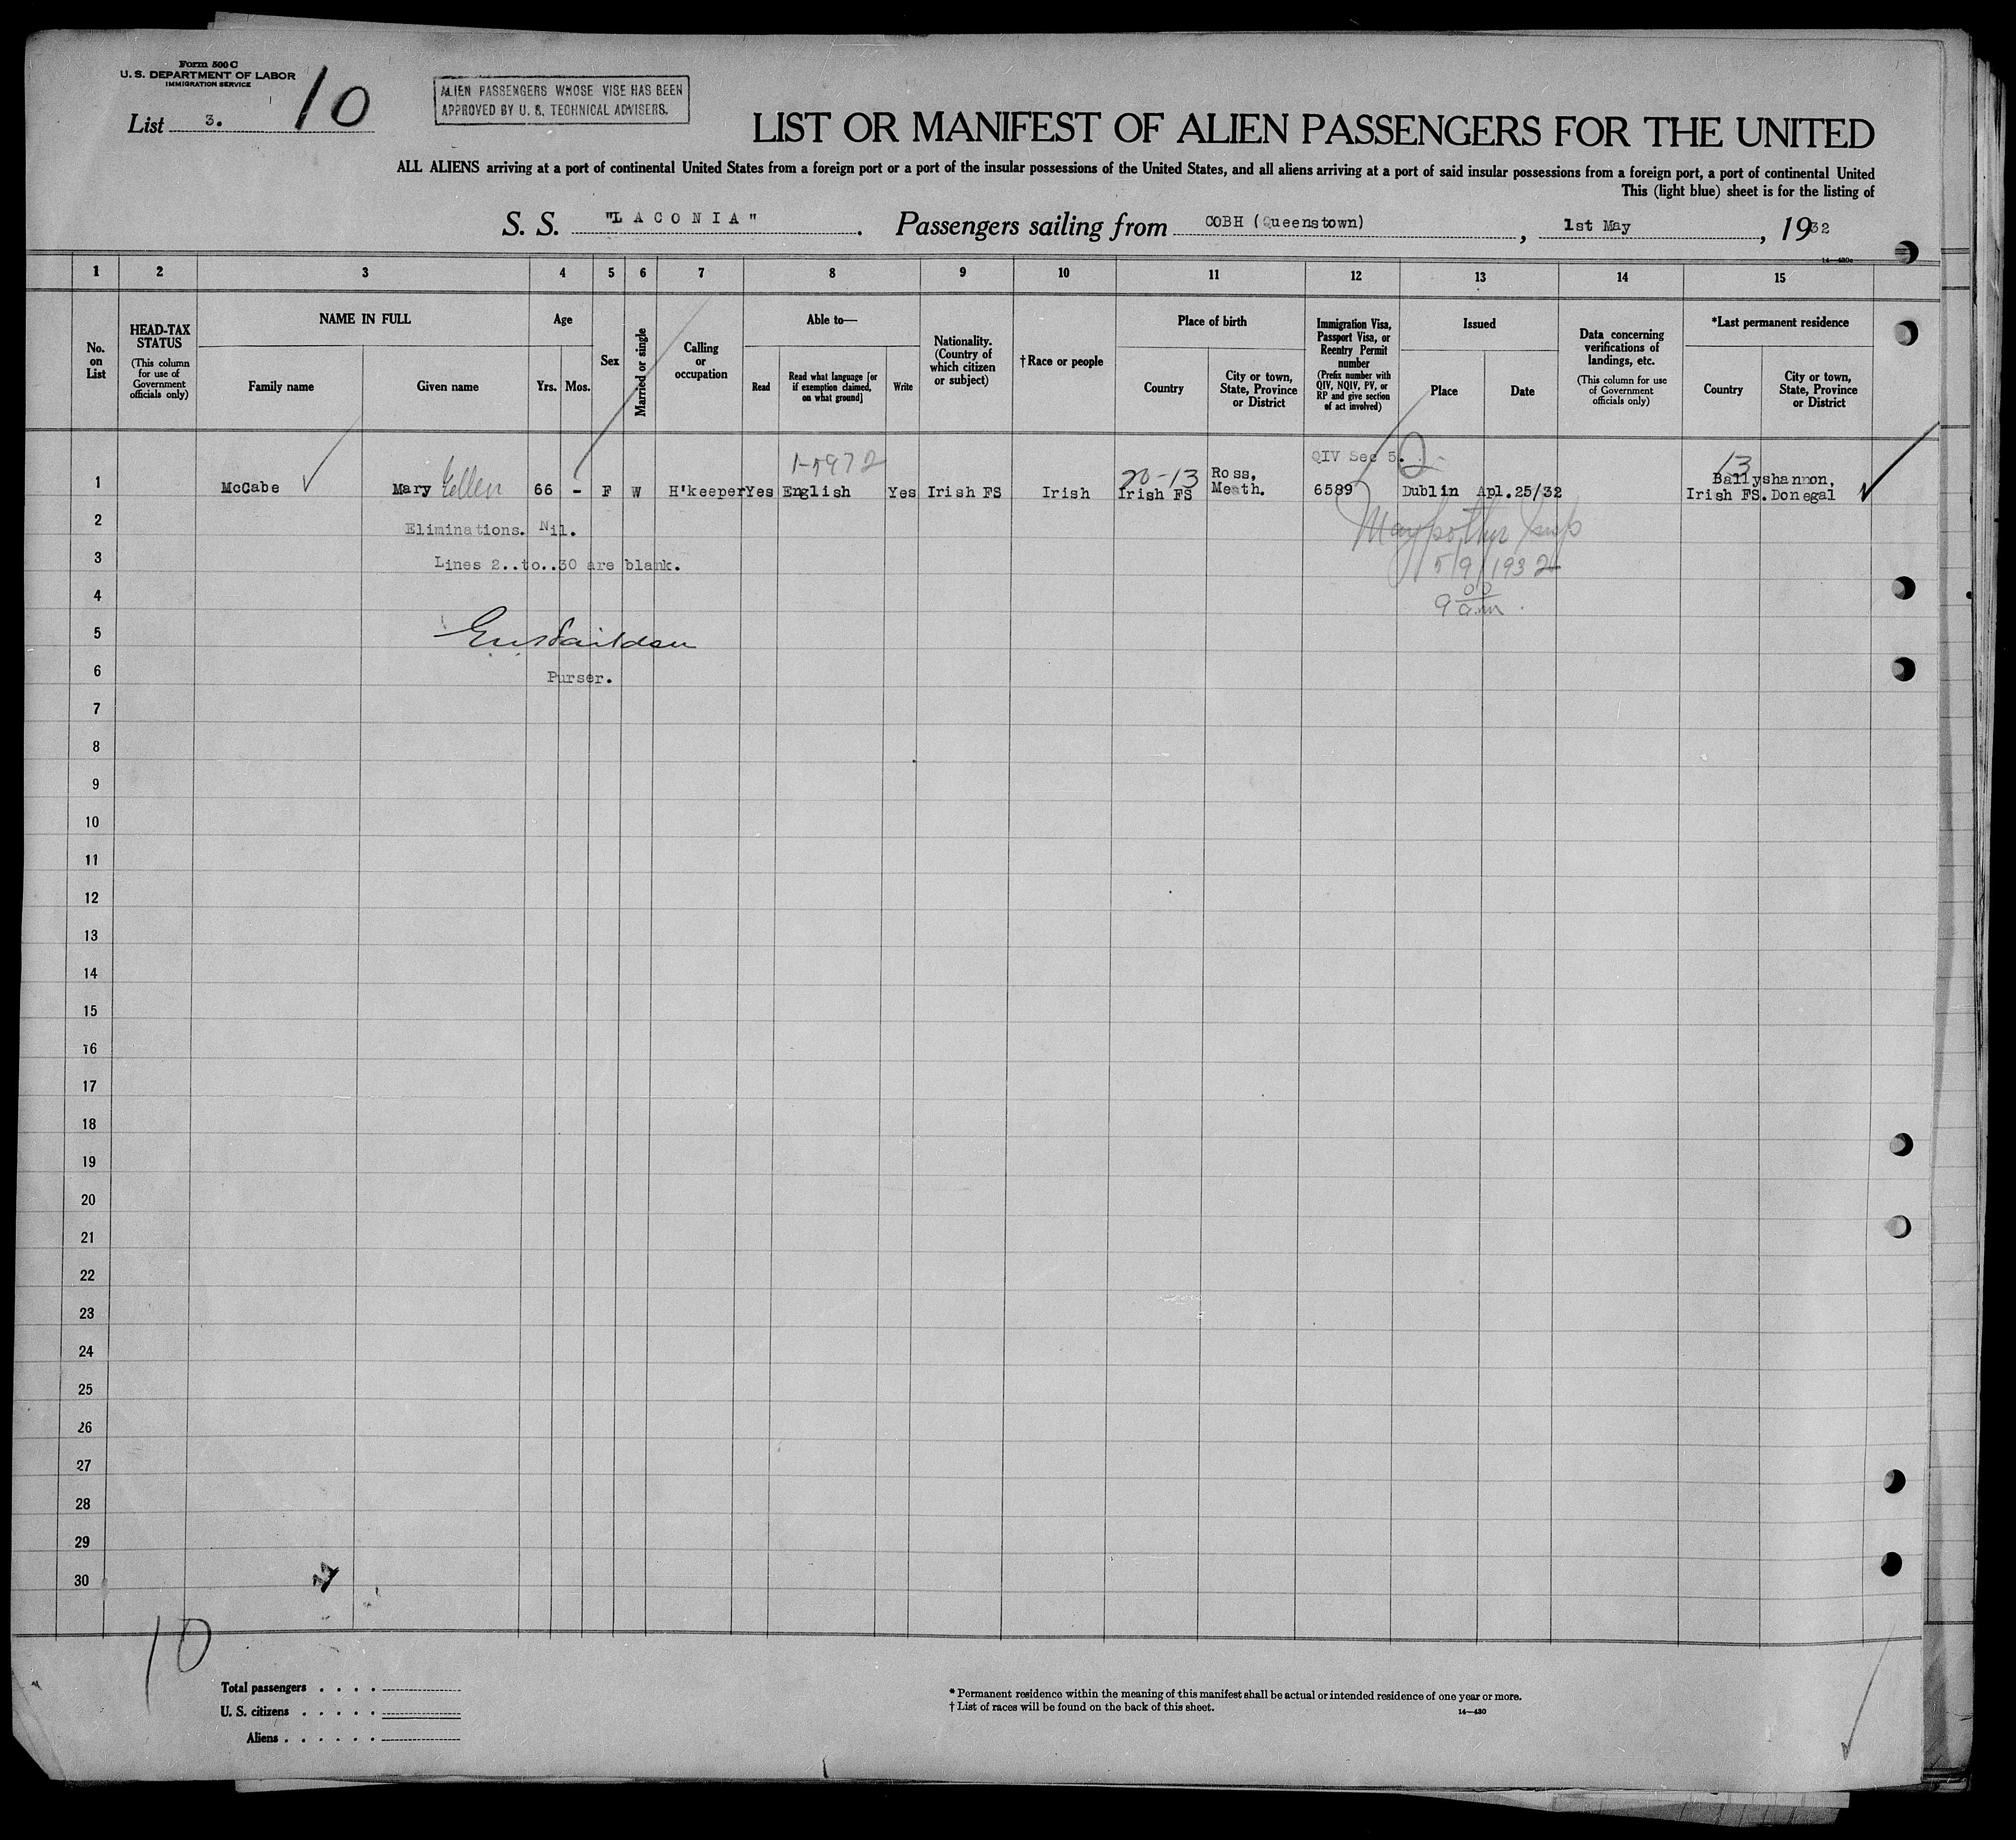 Form 500 C
U. S. DEPARTMENT OF LABOR
IMMIGRATION SERVICE
List 3. 10
ALIEN PASSENGERS WHOSE VISE HAS BEEN
APPROVED BY U. S. TECHNICAL ADVISERS.
LIST OR MANIFEST OF ALIEN PASSENGERS FOR THE UNITED
ALL ALIENS arriving at a port of continental United States from a foreign port or a port of the insular possessions of the United States, and all aliens arriving at a port of said insular possessions from a foreign port, a port of continental United
This (light blue) sheet is for the listing of
S. S. "LACONIA". Passengers sailing from COBH (Queenstown), 1st May, 1932
1 2 3 4 5 6 7 8 9 10 11 12 13 14 15
No. on List
HEAD-TAX STATUS
(This column for use of Government officials only)
NAME IN FULL
Family name
Given name
Age
Yrs.
Mos.
Sex
Married or single
Calling or occupation
Able to—
Read
Read what language [or if exemption claimed, on what ground]
Write
Nationality. (Country of which citizen or subject)
†Race or people
Place of birth
Country
City or town, State, Province or District
Immigration Visa, Passport Visa, or Reentry Permit number
(Prefix number with QIV, NQIV, PV, or RP and give section of act involved)
Issued
Place
Date
Data concerning verifications of landings, etc.
(This column for use of Government officials only)
*Last permanent residence
Country
City or town, State, Province or District
QIV Sec 5. 2
20-13 Ross, 13 Ballyshannon,
1 McCabe Mary Ellen 66 - F W H'keeper Yes English Yes Irish FS Irish Irish FS Meath. 6589 Dublin Apl.25/32 Irish FS. Donegal
2 Eliminations. Nil.
3 Lines 2..to..30 are blank.
5/9/1932
4 9 00 am.
5
6 Purser.
7
8
9
10
11
12
13
14
15
16
17
18
19
20
21
22
23
24
25
26
27
28
29
30
10
Total passengers . . . .
U. S. citizens . . . . .
Aliens . . . . . .
* Permanent residence within the meaning of this manifest shall be actual or intended residence of one year or more.
† List of races will be found on the back of this sheet.
14—430